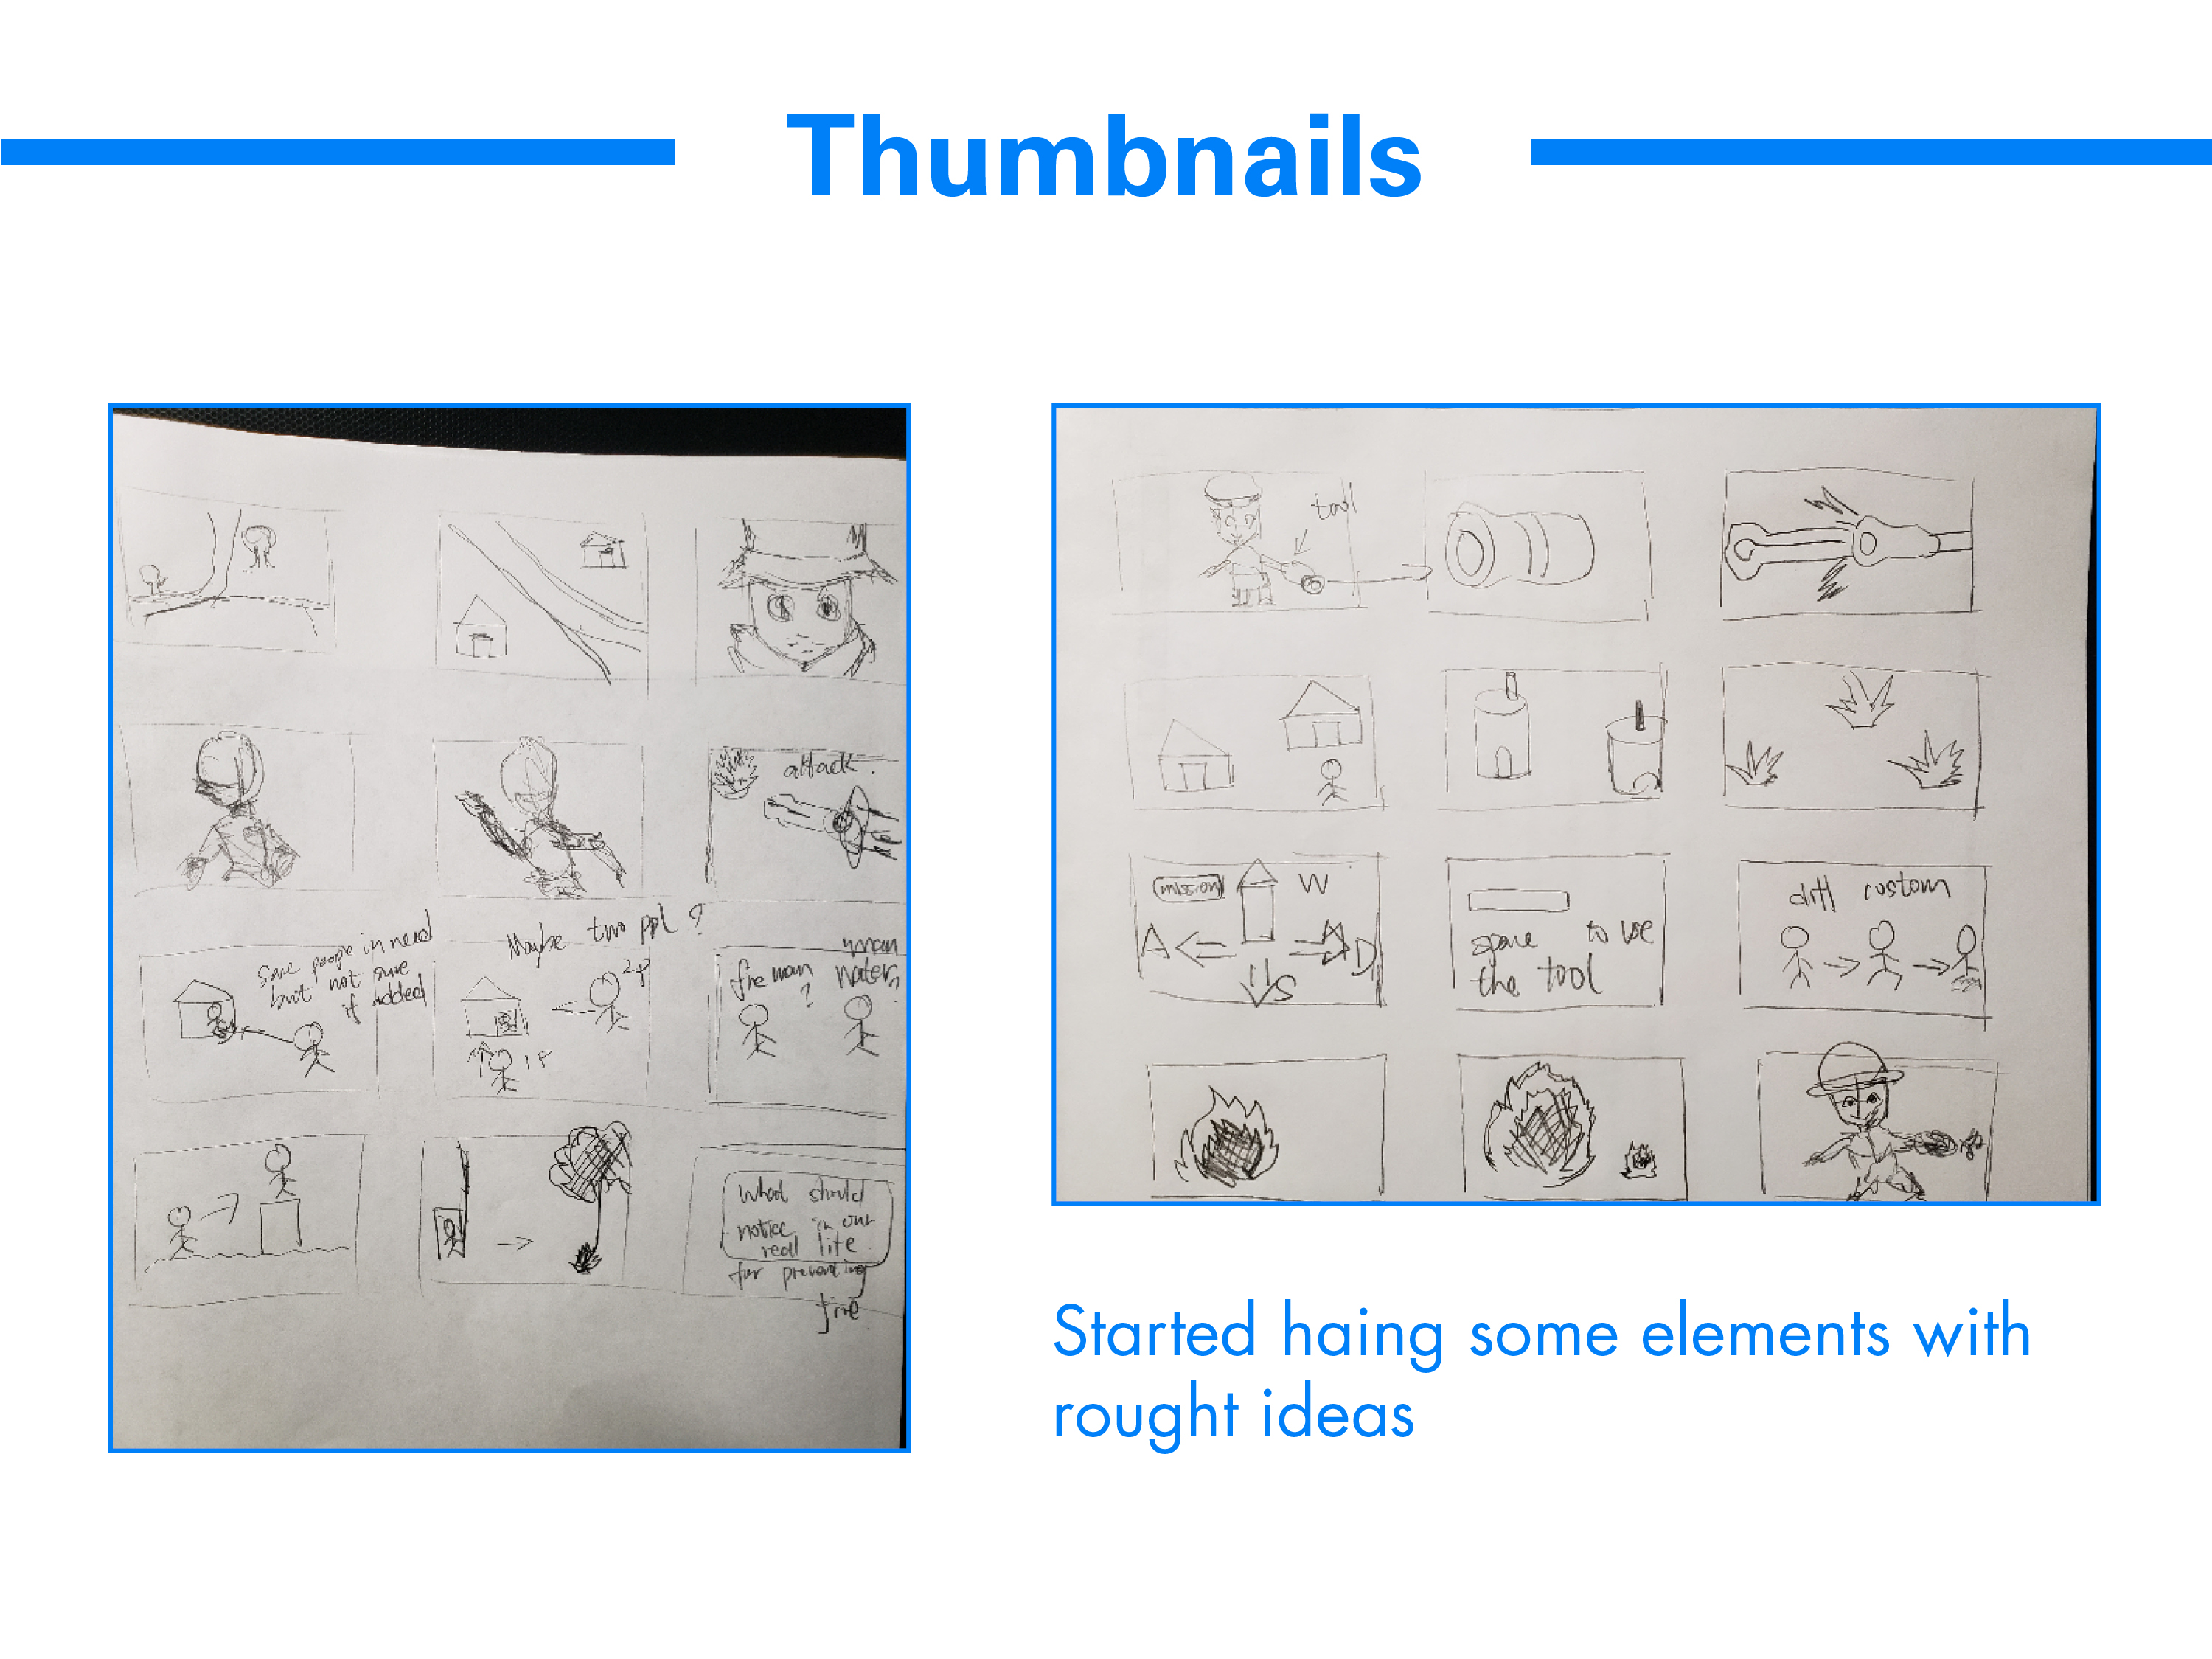 Thumbnails
attack.
Save people in need
but not sure
if added
Maybe two ppl ?
2P
1P
fireman
?
man
Water?
What should
notice in our
real life
for preventing
fire.
tool
mission
W
A
D
S
space to use
the tool
diff custom
Started haing some elements with
rought ideas